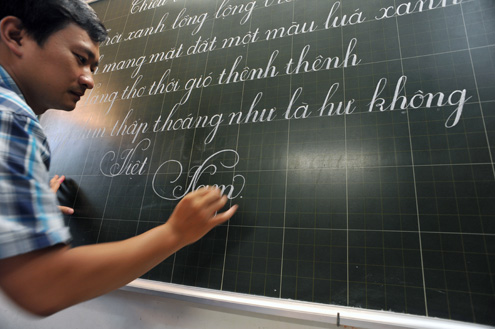 ời xanh lồng lộng
mang mát dất một màu luá xanh
thơ thới gió thênh thênh
thấp thoáng như là hư không
Việt Nam